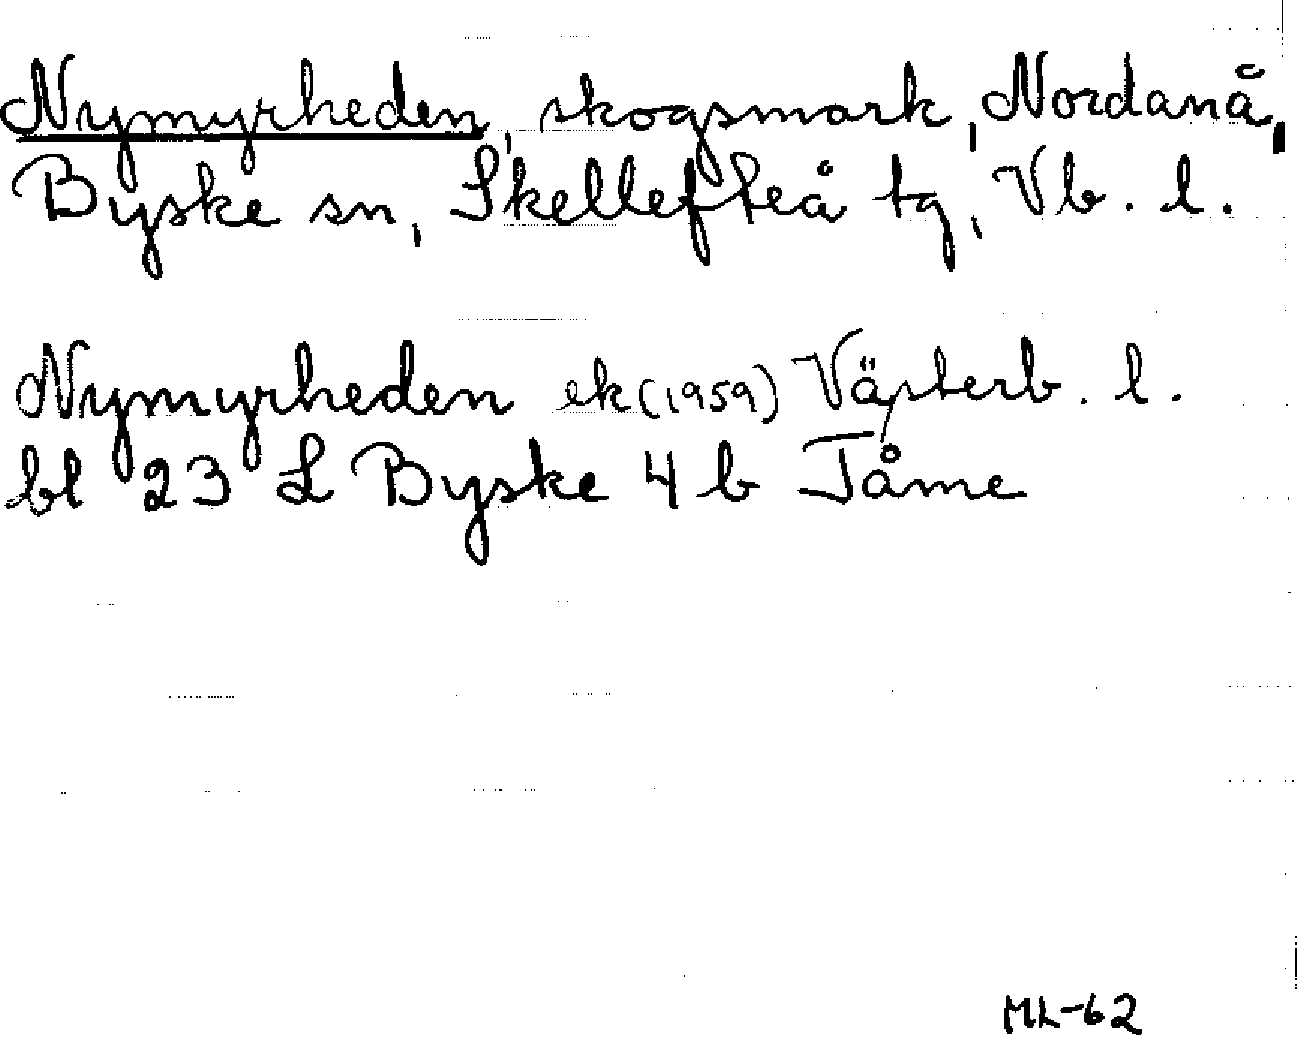 Nymyrheden, skogsmark, Nordanå,
Byske sn, Skellefteå tg, Vb. l.
Nymyrheden ek (1959) Västerb. l.
bl 23 L Byske 4 b Tåme
ML-62